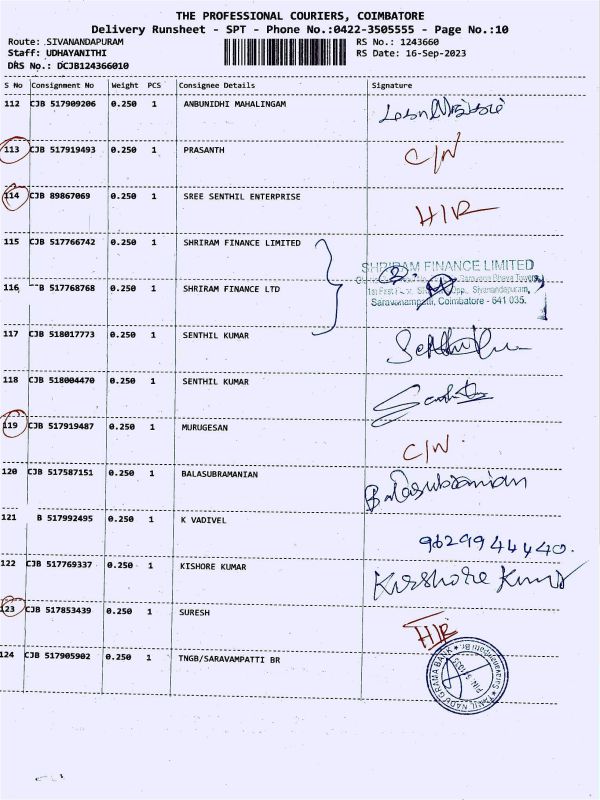 THE PROFESSIONAL COURIERS, COIMBATORE
Delivery Runsheet - SPT - Phone No.:0422-3505555 - Page No.:10
Route: SIVANANDAPURAM RS No.: 1243660
Staff: UDHAYANITHI RS Date: 16-Sep-2023
DRS No.: DCJB124366010
S No Consignment No Weight PCS Consignee Details Signature
112 CJB 517909206 0.250 1 ANBUNIDHI MAHALINGAM
113 CJB 517919493 0.250 1 PRASANTH C/N
114 CJB 89867069 0.250 1 SREE SENTHIL ENTERPRISE H/R
115 CJB 517766742 0.250 1 SHRIRAM FINANCE LIMITED
SHRIRAM FINANCE LIMITED
Saravana Bhava Towers,
116 B 517768768 0.250 1 SHRIRAM FINANCE LTD 1st Opp. Sivanandapuram,
Saravanampatti, Coimbatore - 641 035.
117 CJB 518017773 0.250 1 SENTHIL KUMAR
118 CJB 518004470 0.250 1 SENTHIL KUMAR
119 CJB 517919487 0.250 1 MURUGESAN C/N
120 CJB 517587151 0.250 1 BALASUBRAMANIAN Balasubramian
121 B 517992495 0.250 1 K VADIVEL 9629944440.
122 CJB 517769337 0.250 1 KISHORE KUMAR Kisshore Kumar
123 CJB 517853439 0.250 1 SURESH H/R
124 CJB 517905902 0.250 1 TNGB/SARAVAMPATTI BR TAMIL NADU GRAMA BANK